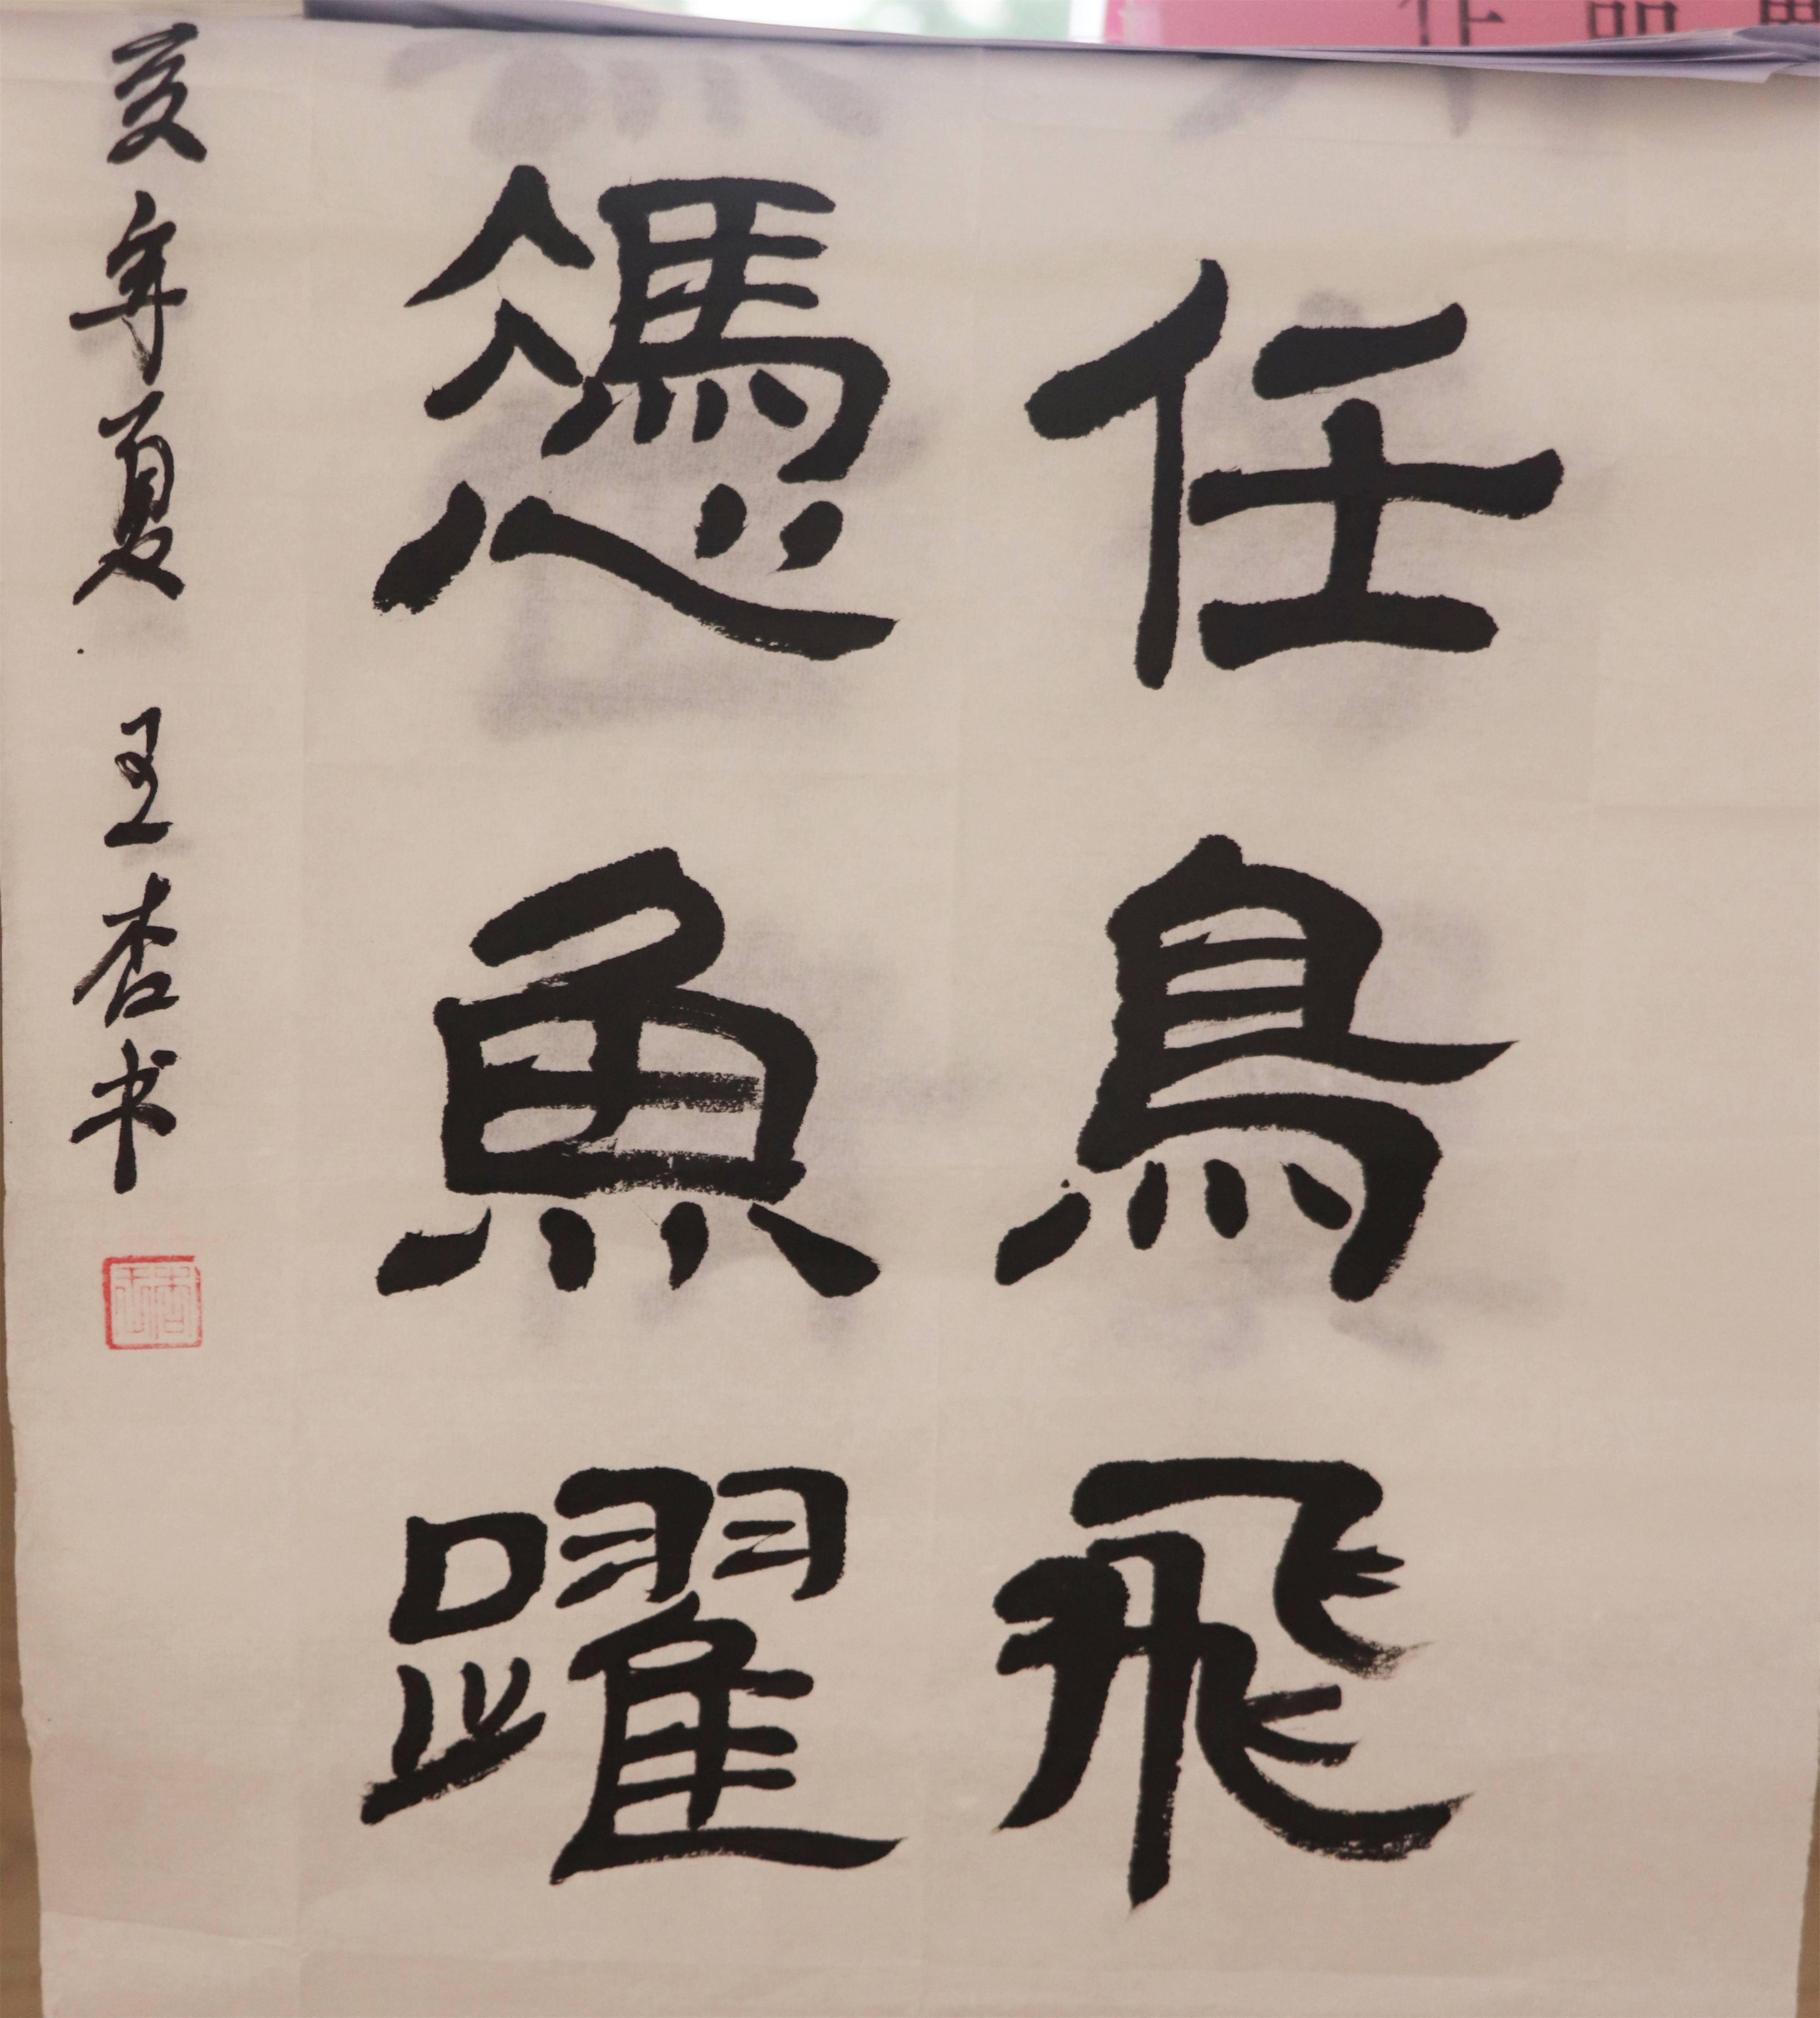 任鳥飛
憑魚躍
亥年夏 王杏书
作品